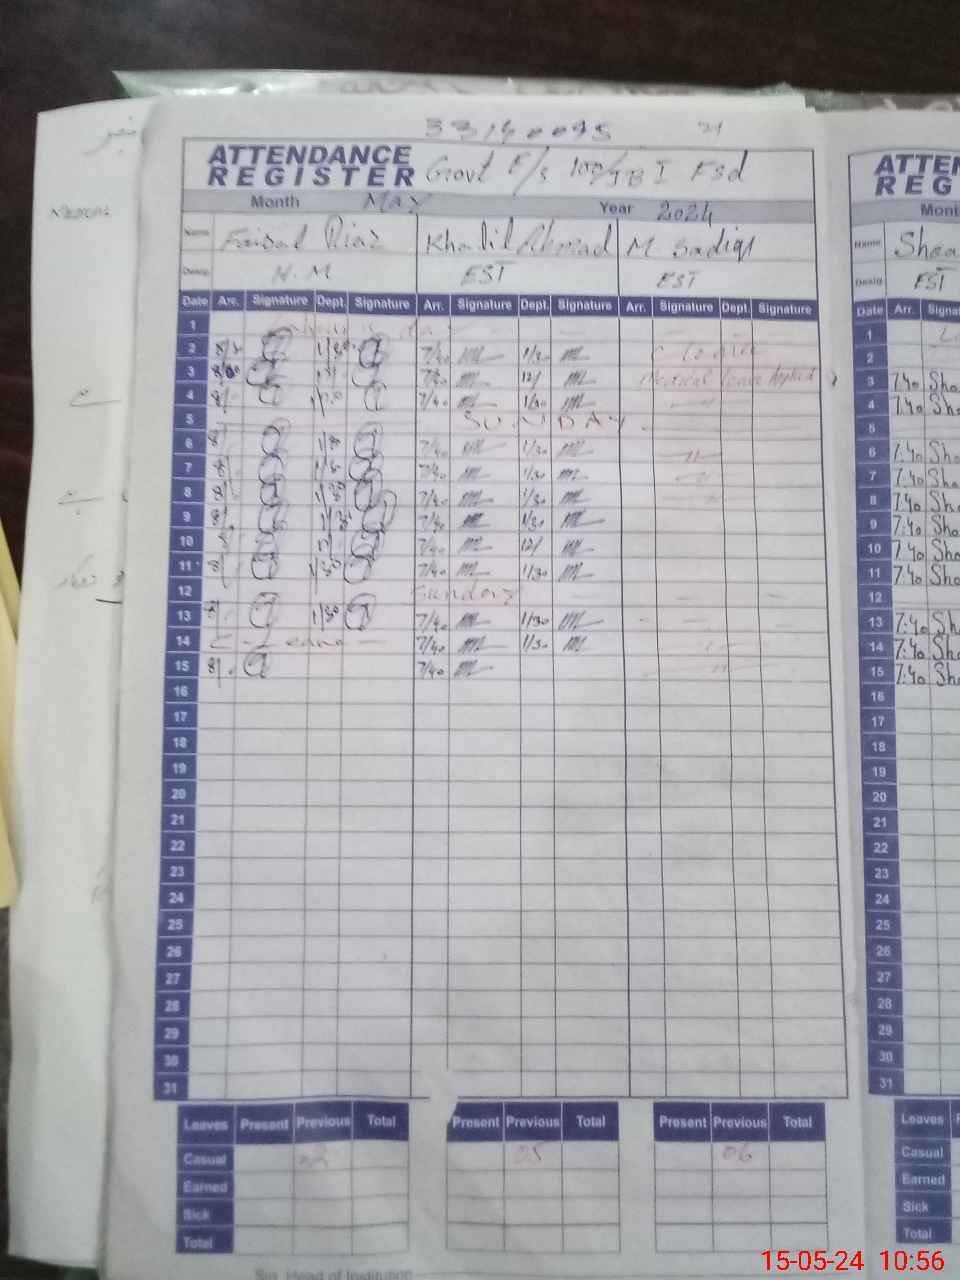 33140095 21
ATTENDANCE REGISTER Govt E/s 100/JB I Fsd
Month May Year 2024
Name Faisal Riaz Khalil Ahmad M. Sadiq
Desig. H.M EST EST
Date Arr. Signature Dept. Signature Arr. Signature Dept. Signature Arr. Signature Dept. Signature
1
2 7/40 1/30 C leave
3 7/40 12/ Medical leave Applied
4 7/40 1/30
5 SUNDAY
6 8/ 7/40 1/30
7 8/ 7/40 1/30
8 8/ 7/40 1/30
9 8/ 7/40 1/30
10 7/40 12/
11 8/ 1/30 7/40 1/30
12 Sunday
13 1/30 7/40 1/30
14 C-Leave 7/40 1/30
15 8/ 7/40
16
17
18
19
20
21
22
23
24
25
26
27
28
29
30
31
Leaves Present Previous Total Present Previous Total Present Previous Total
Casual 05 06
Earned
Sick
Total
Sig. Head of Institution
ATTEN
REG
Mont
Name Shoa
Desig. EST
Date Arr. Signat
1
2
3 7:40 Sho
4 7:40 Sho
5
6 7:40 Sho
7 7:40 Sho
8 7:40 Sho
9 7:40 Sho
10 7:40 Sho
11 7:40 Sho
12
13 7:40 Sho
14 7:40 Sho
15 7:40 Sho
16
17
18
19
20
21
22
23
24
25
26
27
28
29
30
31
Leaves
Casual
Earned
Sick
Total
15-05-24 10:56